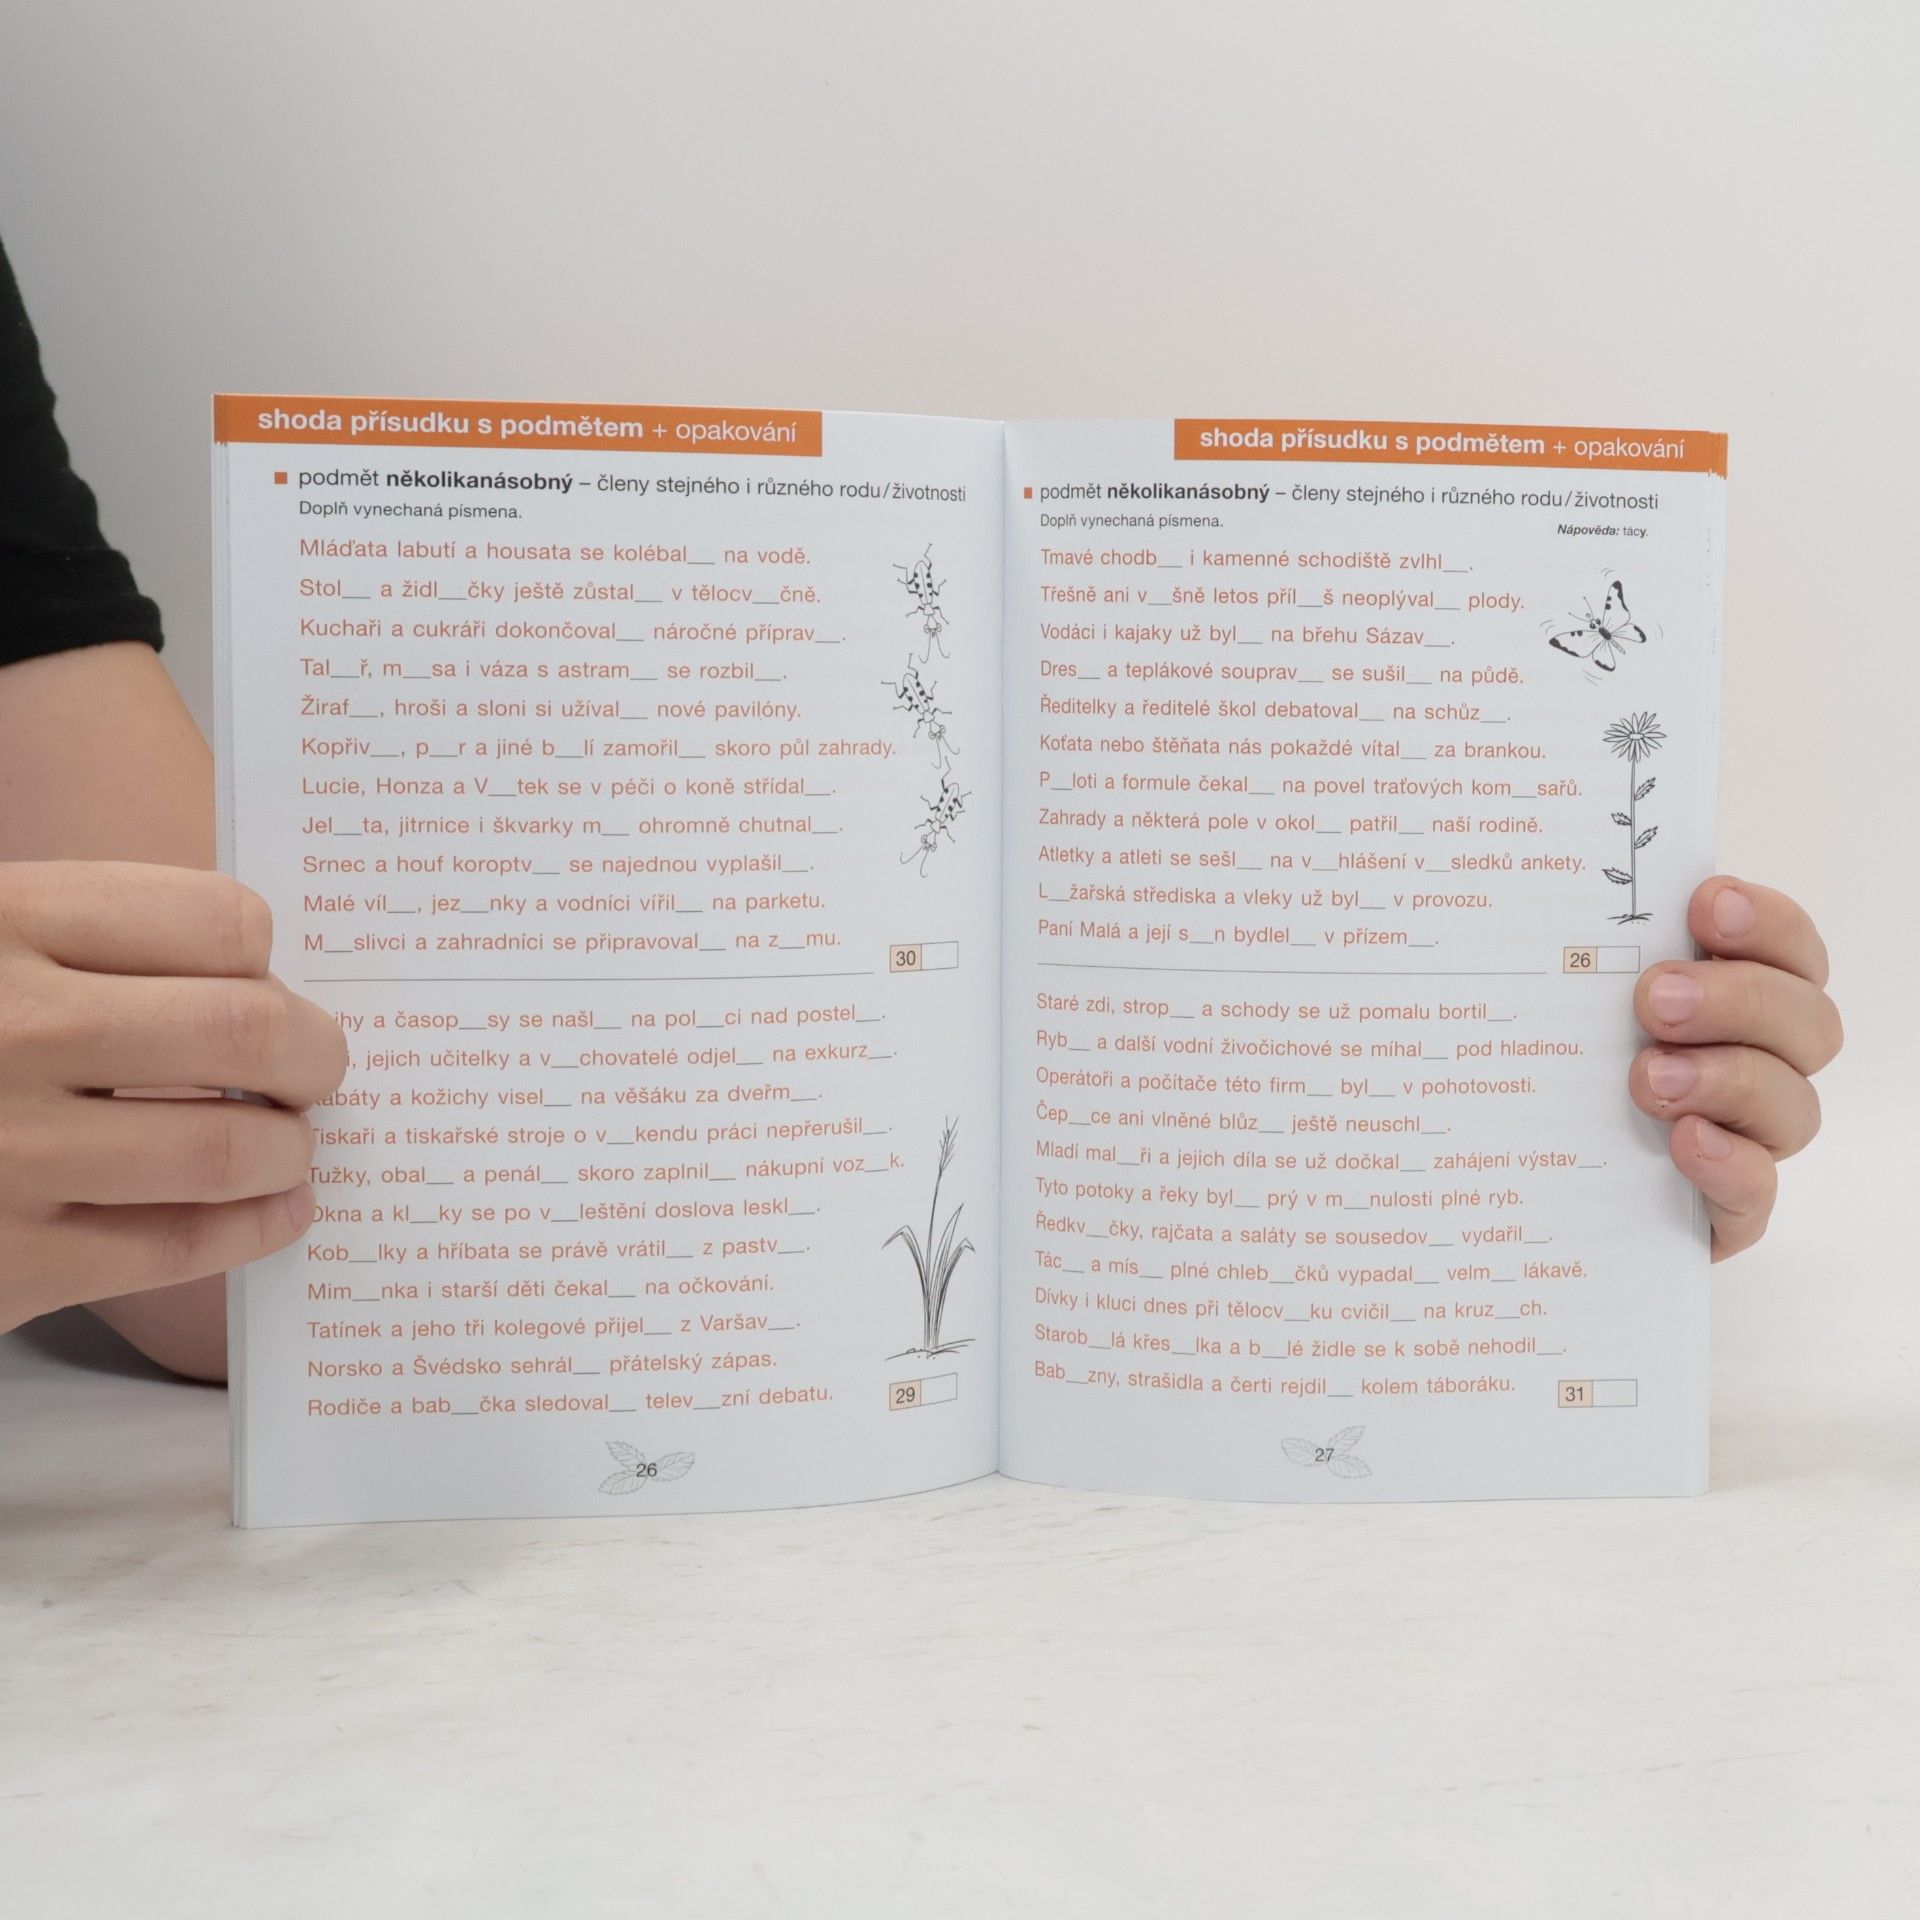 shoda přísudku s podmětem + opakování
podmět několikanásobný – členy stejného i různého rodu/životnosti
Doplň vynechaná písmena.
Mláďata labutí a housata se kolébal__ na vodě.
Stol__ a židl__čky ještě zůstal__ v tělocv__čně.
Kuchaři a cukráři dokončoval__ náročné příprav__.
Tal__ř, m__sa i váza s astram__ se rozbil__.
Žiraf__, hroši a sloni si užíval__ nové pavilóny.
Kopřiv__, p__r a jiné b__lí zamořil__ skoro půl zahrady.
Lucie, Honza a V__tek se v péči o koně střídal__.
Jel__ta, jitrnice i škvarky m__ ohromně chutnal__.
Srnec a houf koroptv__ se najednou vyplašil__.
Malé víl__, jez__nky a vodníci vířil__ na parketu.
M__slivci a zahradníci se připravoval__ na z__mu.
30
a časop__sy se našl__ na pol__ci nad postel__.
jejich učitelky a v__chovatelé odjel__ na exkurz__.
a kožichy visel__ na věšáku za dveřm__.
Tiskaři a tiskařské stroje o v__kendu práci nepřerušil__.
Tužky, obal__ a penál__ skoro zaplnil__ nákupní voz__k.
Okna a kl__ky se po v__leštění doslova leskl__.
Kob__lky a hříbata se právě vrátil__ z pastv__.
Mim__nka i starší děti čekal__ na očkování.
Tatínek a jeho tři kolegové přijel__ z Varšav__.
Norsko a Švédsko sehrál__ přátelský zápas.
Rodiče a bab__čka sledoval__ telev__zní debatu.
29
26
shoda přísudku s podmětem + opakování
podmět několikanásobný – členy stejného i různého rodu/životnosti
Doplň vynechaná písmena.
Nápověda: tácy.
Tmavé chodb__ i kamenné schodiště zvlhl__.
Třešně ani v__šně letos příl__š neoplýval__ plody.
Vodáci i kajaky už byl__ na břehu Sázav__.
Dres__ a teplákové souprav__ se sušil__ na půdě.
Ředitelky a ředitelé škol debatoval__ na schůz__.
Koťata nebo štěňata nás pokaždé vítal__ za brankou.
P__loti a formule čekal__ na povel traťových kom__sařů.
Zahrady a některá pole v okol__ patřil__ naší rodině.
Atletky a atleti se sešl__ na v__hlášení v__sledků ankety.
L__žařská střediska a vleky už byl__ v provozu.
Paní Malá a její s__n bydlel__ v přízem__.
26
Staré zdi, strop__ a schody se už pomalu bortil__.
Ryb__ a další vodní živočichové se míhal__ pod hladinou.
Operátoři a počítače této firm__ byl__ v pohotovosti.
Čep__ce ani vlněné blůz__ ještě neuschl__.
Mladí mal__ři a jejich díla se už dočkal__ zahájení výstav__.
Tyto potoky a řeky byl__ prý v m__nulosti plné ryb.
Ředkv__čky, rajčata a saláty se sousedov__ vydařil__.
Tác__ a mís__ plné chleb__čků vypadal__ velm__ lákavě.
Dívky i kluci dnes při tělocv__ku cvičil__ na kruz__ch.
Starob__lá křes__lka a b__lé židle se k sobě nehodil__.
Bab__zny, strašidla a čerti rejdil__ kolem táboráku.
31
27